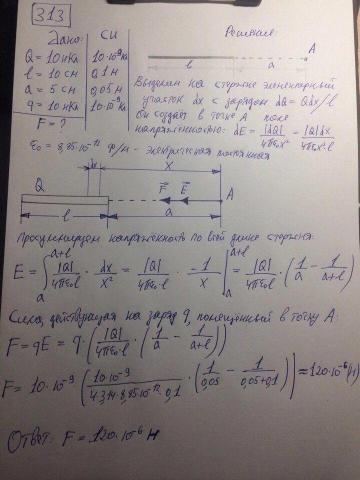 313
Дано: СИ Решение:
Q = 10 нКл 10·10⁻⁹ Кл
l = 10 см 0,1 м
a = 5 см 0,05 м
q = 10 нКл 10·10⁻⁹ Кл
F = ?
l a A
Выделим на стержне элементарный
участок dx с зарядом dQ = Qdx/l
Он создаёт в точке A поле
напряжённостью: dE = |dQ|/4πε₀x² = |Q|dx/4πε₀x²l
ε₀ = 8,85·10⁻¹² Ф/м - электрическая постоянная
dx x
Q F E A
l a
Просуммируем напряжённость по всей длине стержня:
E = ∫ₐᵃ⁺ˡ |Q|/4πε₀l · dx/x² = |Q|/4πε₀l · -1/x |ₐᵃ⁺ˡ = |Q|/4πε₀l · (1/a - 1/(a+l))
Сила, действующая на заряд q, помещённый в точку A:
F = qE = q·(|Q|/4πε₀l · (1/a - 1/(a+l)))
F = 10·10⁻⁹ (10·10⁻⁹/(4·3,14·8,85·10⁻¹²·0,1) · (1/0,05 - 1/(0,05+0,1))) ≈ 120·10⁻⁶ (Н)
Ответ: F = 120·10⁻⁶ Н